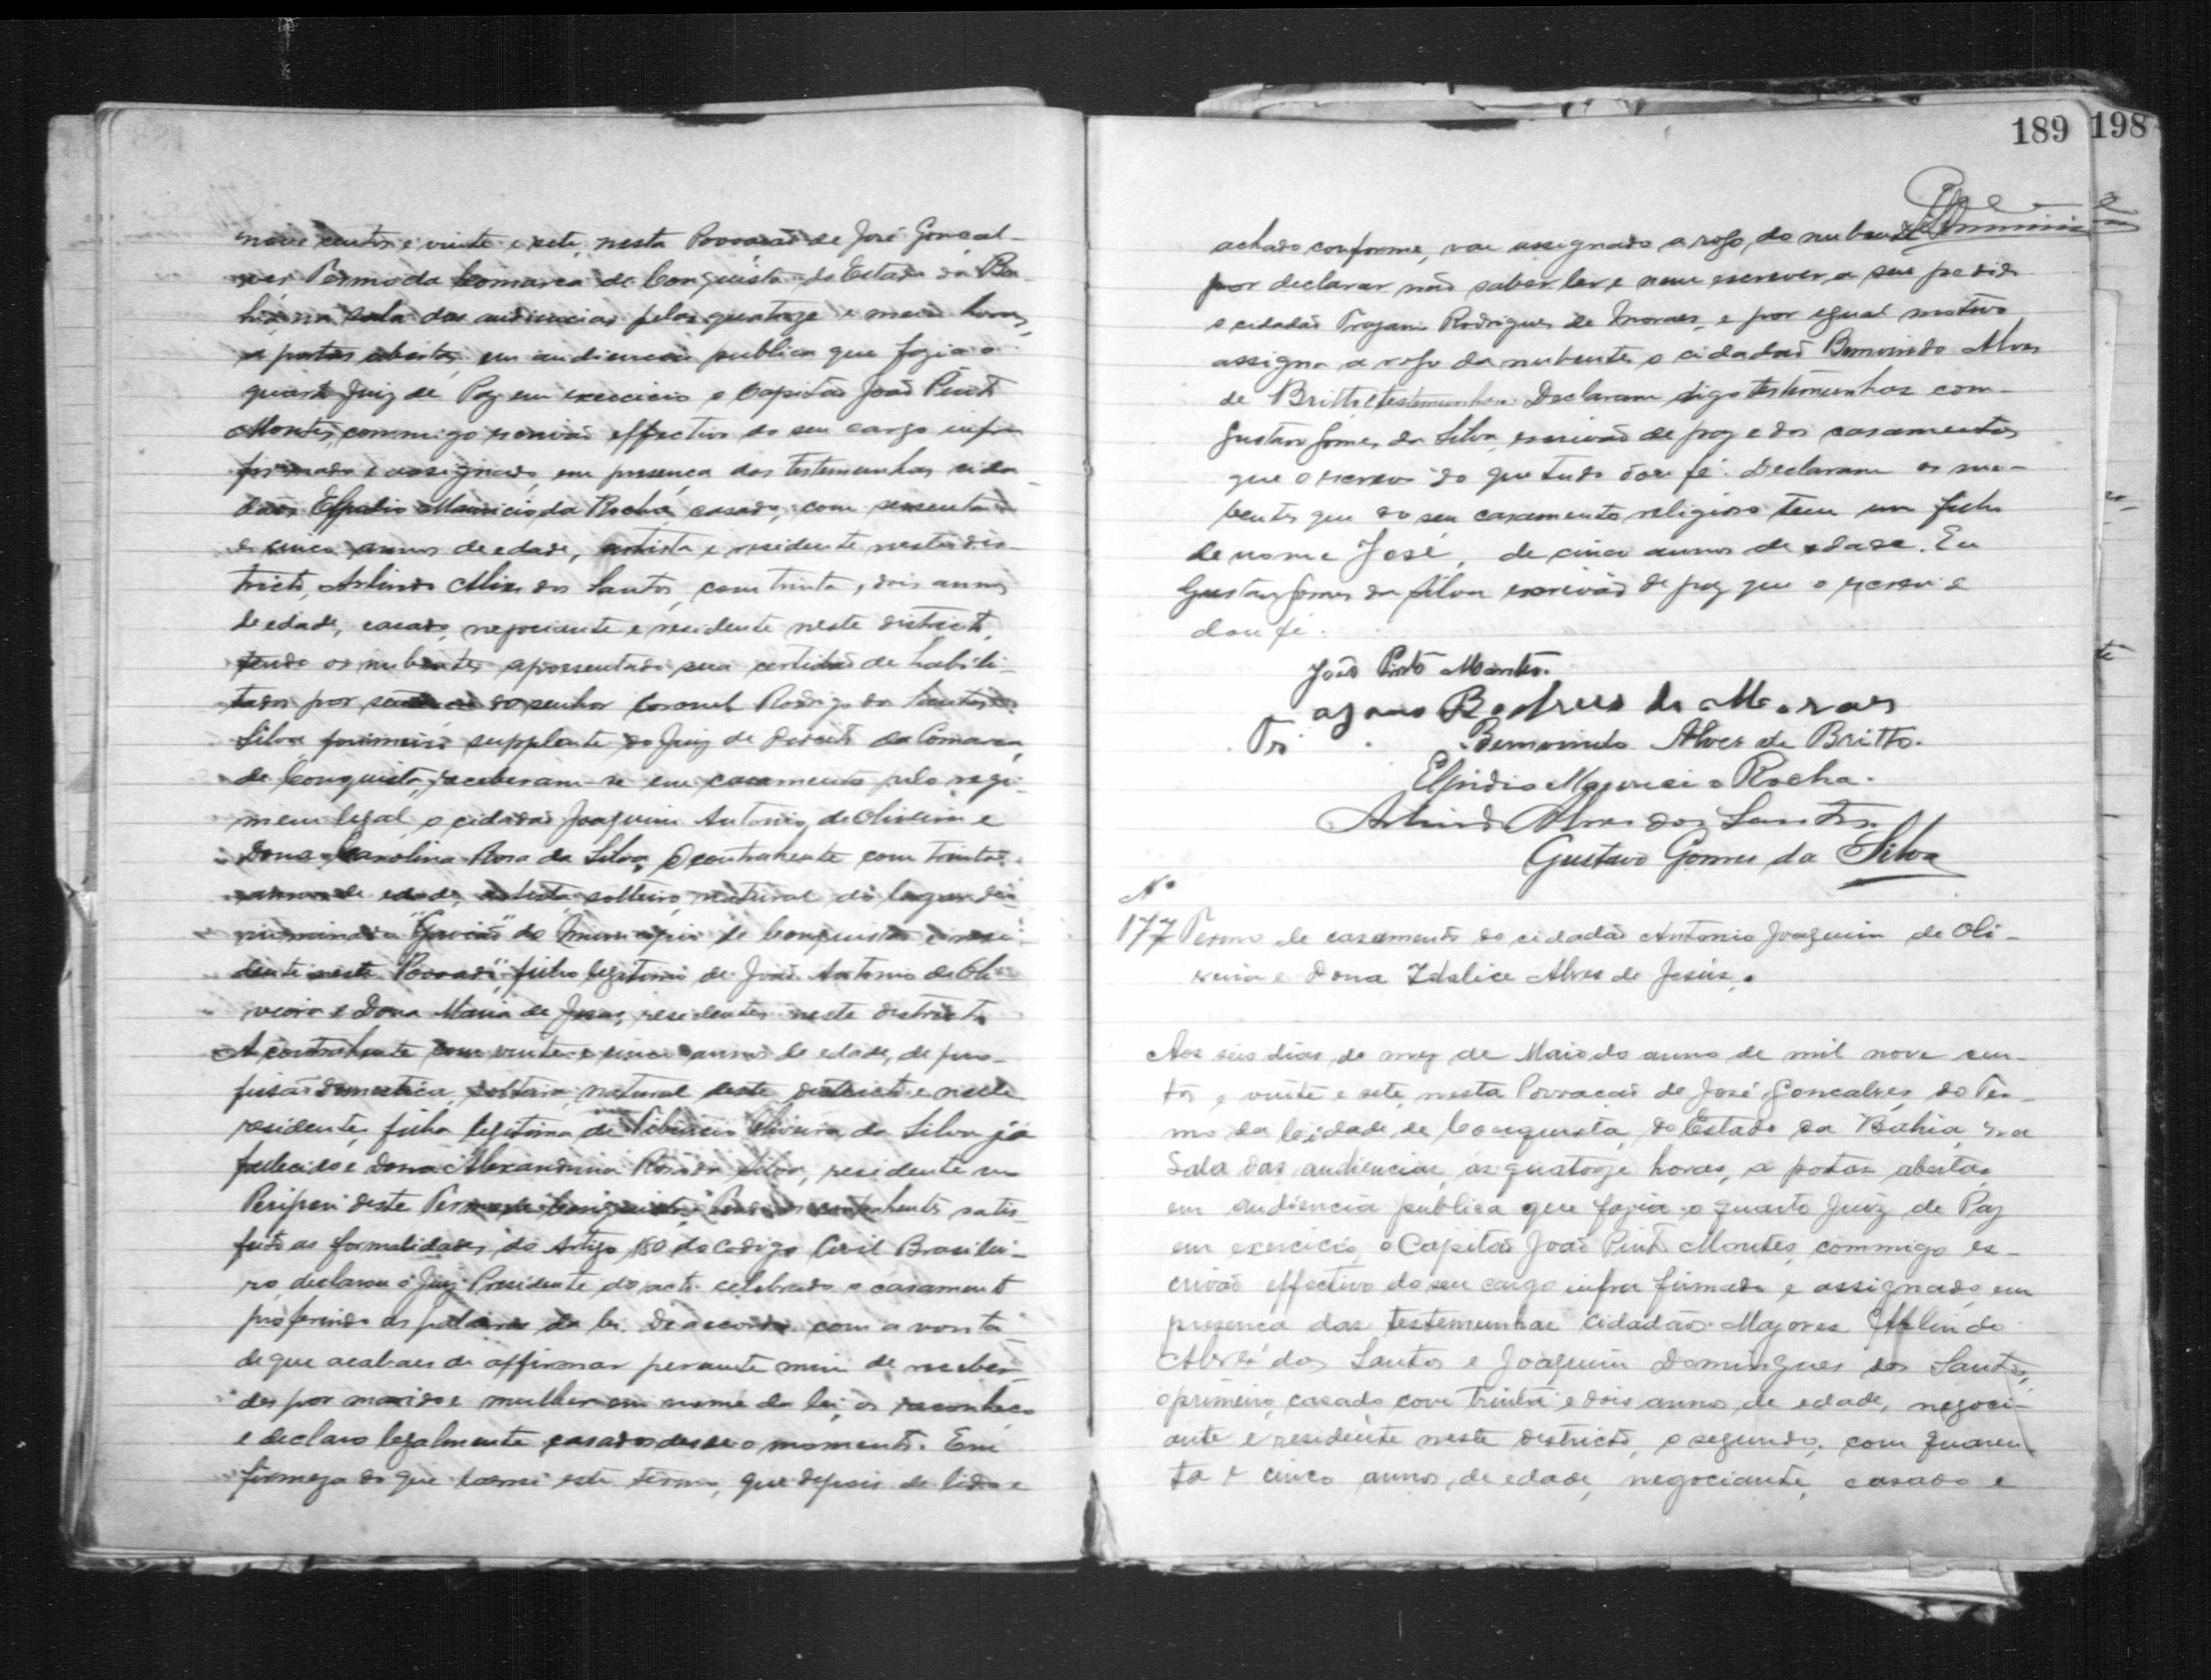 nove centos e vinte e sete, nesta Povoação de José Gonçal-
ves Termo da Comarca de Conquista do Estado da Ba-
hia, na sala das audiencias pelas quatorze e meia horas,
a portas abertas, em audiencia publica que fazia o
quarto Juiz de Paz em exercicio o Capitão João Pinto
Montes, commigo escrivão effectivo do seu cargo infra
firmado e assignado, em presença das testemunhas cida-
dãos Elpidio Mauricio da Rocha, casado, com sessenta
e cinco annos de edade, artista e residente neste dis-
tricto, Arlindo Alves dos Santos, com trinta e dois annos
de edade, casado, negociante e residente neste districto,
tendo os nubentes apresentado sua certidão de habili-
tados por do senhor Coronel Rodrigo dos Santos
Silva primeiro supplente do Juiz de Direito da Comarca
de Conquista, receberam-se em casamento pelo regi-
mem legal, o cidadão Joaquim Antonio de Oliveira e
Dona Carolina Rosa da Silva. O contrahente com trinta
annos de edade, artista, solteiro, natural do lugar de-
nominado "Gavião" do Municipio de Conquista e resi-
dente neste Povoado, filho legitimo de João Antonio de Oli-
veira e Dona Maria de Jesus, residentes neste districto
A contrahente com vinte e cinco annos de edade, de pro-
fissão domestica, solteira, natural deste districto e neste
residente, filha legitima de Tiburcio Oliveira da Silva já
fallecido e Dona Alexandrina Rosa da Silva, residente em
Periperi deste Termo de Conquista. Tendo os contrahentes satis-
feito as formalidades do Artigo 180 do Codigo Civil Brasilei-
ro, declarou o Juiz Presidente do acto celebrado o casamento
proferindo as palavras da lei. De accordo com a vonta-
de que acabaes de affirmar perante mim de receber-
des por marido e mulher em nome da lei, os reconheço
e declaro legalmente casados desde o momento. Em
firmeza do que lavrei este termo, que depois de lido e
189 198
achado conforme, vae assignado a rogo, do nubente
por declarar não saber ler e nem escrever a seu pedido
o cidadão Trajano Rodrigues de Moraes, e por egual motivo
assigna a rogo da nubente o cidadão Bemvindo Alves
de Britto, e testemunhas. Declaram digo testemunhas com-
Gustavo Gomes da Silva, escrivão de paz e dos casamentos
que o escrevi do que tudo dou fé. Declaram os nu-
bentes que do seu casamento religioso tem um filho
de nome José, de cinco annos de edade. Eu
Gustavo Gomes da Silva escrivão de paz que o escrevi e
dou fé.
João Pinto Montes.
Trajano Rodrues de Moraes
Bemvindo Alves de Britto.
Elpidio Mauricio Rocha.
Arlindo Alves dos Santos.
Gustavo Gomes da Silva
Nº
177 Termo de casamento do cidadão Antonio Joaquim de Oli-
veira e Dona Idalice Alves de Jesús.
Aos seis dias do mez de Maio do anno de mil nove cen-
tos e vinte e sete, nesta Povoação de José Gonçalves, do Ter-
mo da Cidade de Conquista, do Estado da Bahia, na
Sala das audiencias, ás quatorze horas, a portas abertas
em audiencia publica que fazia o quarto Juiz de Paz
em exercicio, o Capitão João Pinto Montes, commigo es-
crivão effectivo do seu cargo infra firmado e assignado, em
presença das testemunhas Cidadãos Majores Arlindo
Alves dos Santos e Joaquim Domingues dos Santos,
o primeiro, casado com trinta e dois annos de edade, negoci-
ante e residente neste districto, o segundo, com quaren-
ta e cinco annos, de edade, negociante, casado e